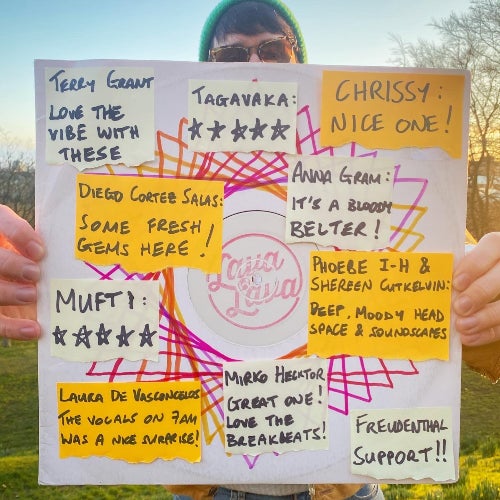 TERRY GRANT
LOVE THE
VIBE WITH
THESE
TAGAVAKA:
★★★★★
CHRISSY:
NICE ONE!
DIEGO CORTEE SALAS:
SOME FRESH
GEMS HERE!
ANNA GRAM:
IT'S A BLOODY
BELTER!
Lava
Lava
MUFTI:
★★★★★
PHOEBE I-H &
SHEREEN CUTKELVIN:
DEEP, MOODY HEAD
SPACE & SOUNDSCAPES
LAURA DE VASCONCELOS
THE VOCALS ON 7AM
WAS A NICE SURPRISE!
MIRKO HECKTOR
GREAT ONE!
LOVE THE
BREAKBEATS!
FREUDENTHAL
SUPPORT!!